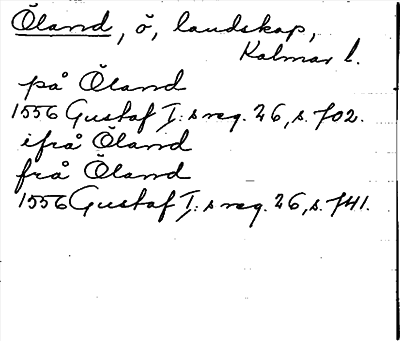 Öland, ö, landskap,
Kalmar l.
på Öland
1556 Gustaf I:s reg. 26, s. 702.
ifrå Öland
frå Öland
1556 Gustaf I:s reg. 26, s. 741.